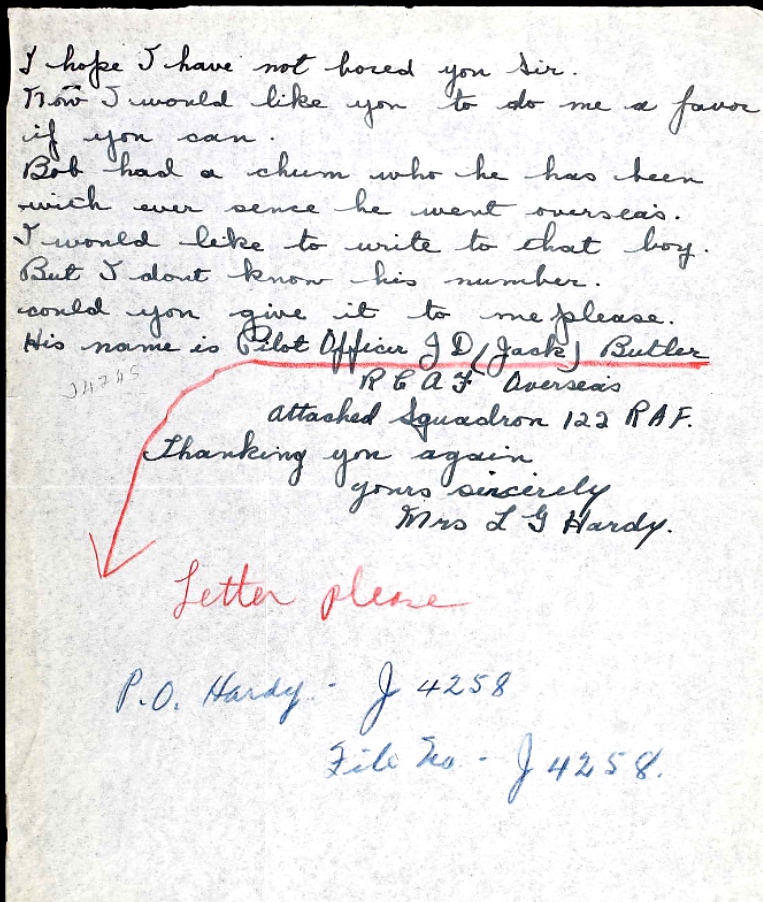 I hope I have not bored you Sir.
Now I would like you to do me a favor
if you can.
Bob had a chum who he has been
with ever sence he went overseas.
I would like to write to that boy.
But I dont know his number.
could you give it to me please.
His name is Pilot Officer J D (Jack) Butler
R C A F Overseas
attached Squadron 122 RAF.
Thanking you again
yours sincerely
Mrs L G Hardy.
Letter please
P.O. Hardy - J 4258
File No - J 4258.